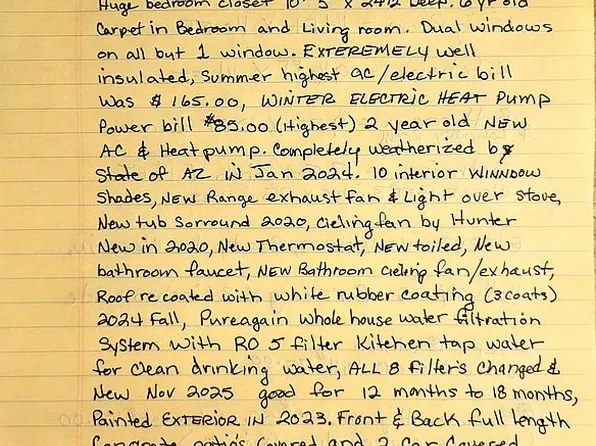 Huge bedroom closet 10' 5" x 24 1/2 Deep. 6 yr old
Carpet in Bedroom and Living room. Dual windows
on all but 1 window. EXTEREMELY well
insulated, Summer highest ac/electric bill
was $165.00, WINTER ELECTRIC HEAT PUMP
Power bill $85.00 (Highest) 2 year old NEW
AC & Heatpump. Completely weatherized by
State of AZ IN Jan 2024. 10 interior WINNDOW
Shades, NEW Range exhaust fan & Light over stove,
New tub Sorround 2020, Cielingfan by Hunter
New in 2020, New Thermostat, NEW toiled, New
bathroom faucet, NEW Bathroom cieling fan/exhaust,
Roof re coated with white rubber coating (3 coats)
2024 Fall, Pureagain whole house water filtration
System with RO 5 filter Kitchen tap water
for clean drinking water, ALL 8 filter's changed &
New Nov 2025 good for 12 months to 18 months,
Painted EXTERIOR IN 2023. Front & Back full length
Covered and 2 Car Covered